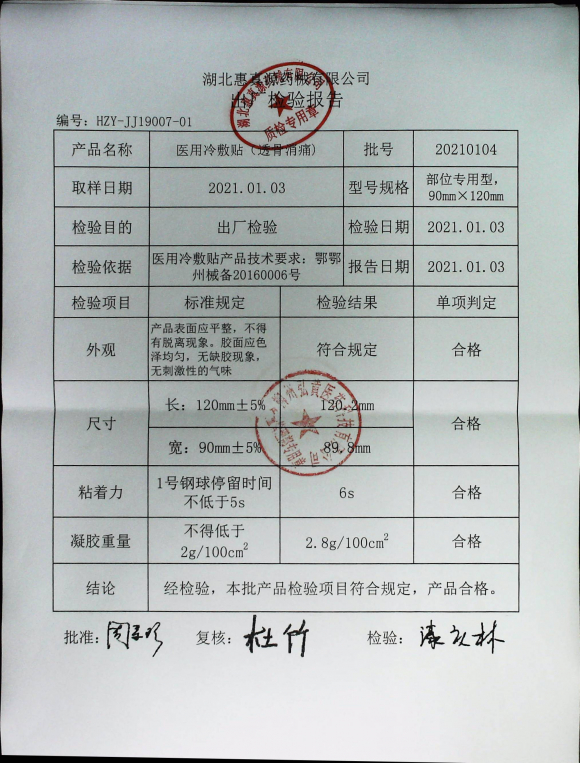 湖北惠真源药械有限公司
出厂检验报告
质检专用章
编号：HZY-JJ19007-01
产品名称 医用冷敷贴（透骨消痛） 批号 20210104
取样日期 2021.01.03 型号规格 部位专用型，
90mm×120mm
检验目的 出厂检验 检验日期 2021.01.03
检验依据 医用冷敷贴产品技术要求：鄂鄂
州械备20160006号 报告日期 2021.01.03
检验项目 标准规定 检验结果 单项判定
外观 产品表面应平整，不得
有脱离现象。胶面应色
泽均匀，无缺胶现象，
无刺激性的气味 符合规定 合格
尺寸 长：120mm±5% 120.2mm 合格
宽：90mm±5% 89.8mm
粘着力 1号钢球停留时间
不低于5s 6s 合格
凝胶重量 不得低于
2g/100cm² 2.8g/100cm² 合格
结论 经检验，本批产品检验项目符合规定，产品合格。
批准： 复核：杜竹 检验：